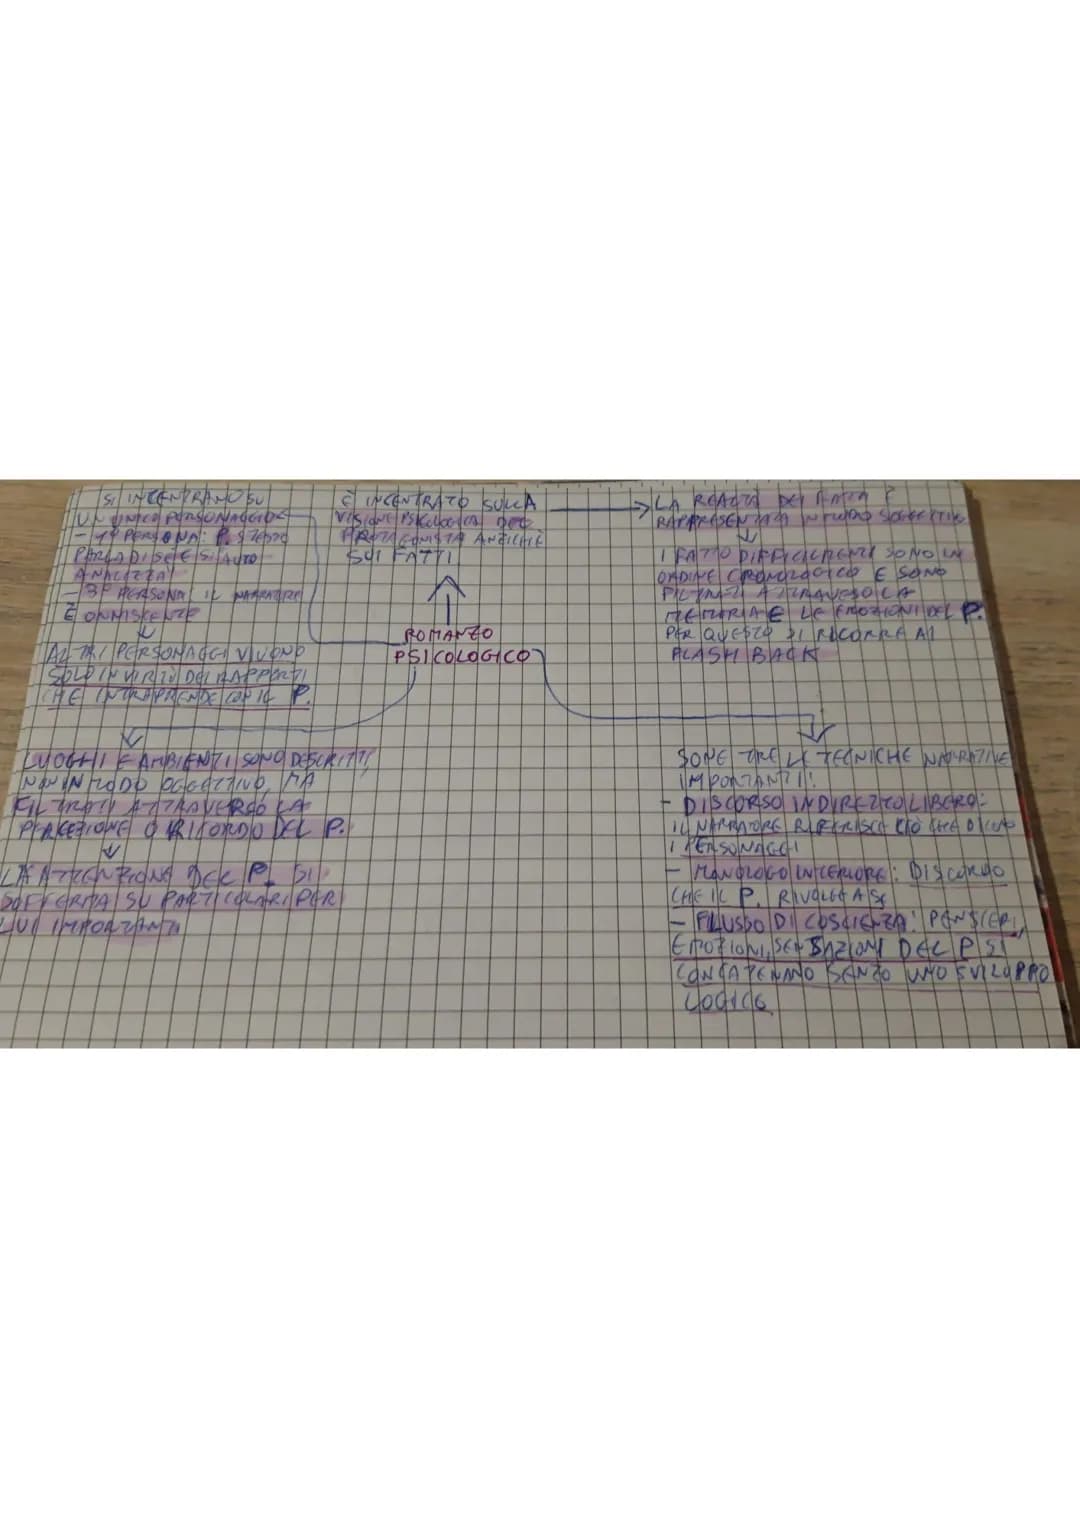 SI INCENTRANO SU
UN UNICO PERSONAGGIO
- 1ª PERSONA: P. STESSO
PARLA DI SE E SI AUTO
ANALIZZA
- 3ª PERSONA IL NARRATORE
È ONNISCENTE
ALTRI PERSONAGGI VIVONO
SOLO IN VIRTÙ DEI RAPPORTI
CHE INTRAPRENDE CON IL P.
È INCENTRATO SULLA
VISIONE PSICOLOGICA DEL
PROTAGONISTA ANZICHE
SUI FATTI
LA REALTÀ DEI È
RAPPRESENTATA IN MODO SOGGETTIVO
I FATTO DIFFICILMENTE SONO IN
ORDINE CRONOLOGICO E SONO
FILTRATI ATTRAVESO LA
MEMORIA E LE EMOZIONI DEL P.
PER QUESTO SI RICORRE AI
FLASH BACK
ROMANZO
PSICOLOGICO
LUOGHI E AMBIENTI SONO DESCRITTI
NON IN MODO OGGETTIVO, MA
FILTRATI ATTRAVERSO LA
PERCEZIONE O RICORDO DEL P.
LA ATTENZIONE DEL P. SI
SOFFERMA SU PARTICOLARI PER
LUI IMPORTANTI
SONE TRE LE TECNICHE NARRATIVE
IMPORTANTI!
- DISCORSO INDIRETTO LIBERO:
IL NARRATORE RIFERISCE CIÒ CHE DICONO
I PERSONAGGI
- MONOLOGO INTERIORE: DISCORSO
CHE IL P. RIVOLGE A SE
- FLUSSO DI COSCIENZA: PENSIERI,
EMOZIONI, SENSAZIONI DEL P SI
CONCATENANO SENZO UNO SVILUPPO
LOGICO